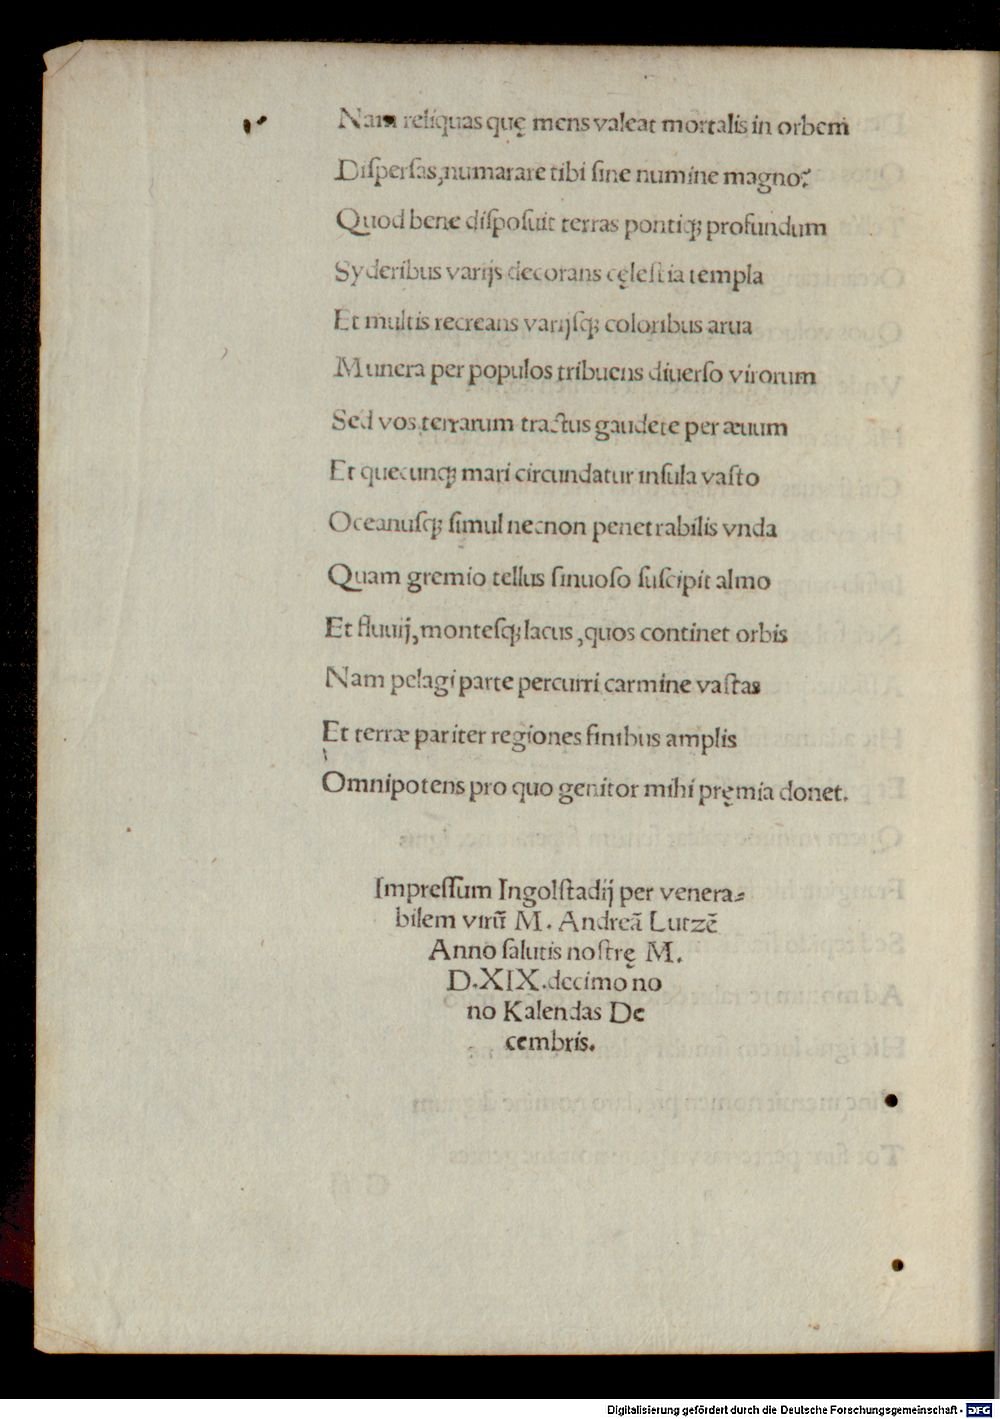 Nam reliquas quę mens valeat mortalis in orbem
Diſperſas,numarare tibi ſine numine magno?
Quod bene diſpoſuit terras pontiq; profundum
Syderibus varijs decorans cęleſtia templa
Et multis recreans varijſq; coloribus arua
Munera per populos tribuens diuerſo virorum
Sed vos terrarum tractus gaudete per æuum
Et quecunq; mari circundatur inſula vaſto
Oceanuſq; ſimul necnon penetrabilis vnda
Quam gremio tellus ſinuoſo ſuſcipit almo
Et fluuij,monteſq; lacus,quos continet orbis
Nam pelagi parte percurri carmine vaſtas
Et terræ pariter regiones finibus amplis
Omnipotens pro quo genitor mihi pręmia donet.
Impreſſum Ingolſtadij per venera⸗
bilem virũ M. Andreã Lutzẽ
Anno ſalutis noſtrę M.
D.XIX.decimo no
no Kalendas De
cembris.
Digitalisierung gefördert durch die Deutsche Forschungsgemeinschaft - DFG